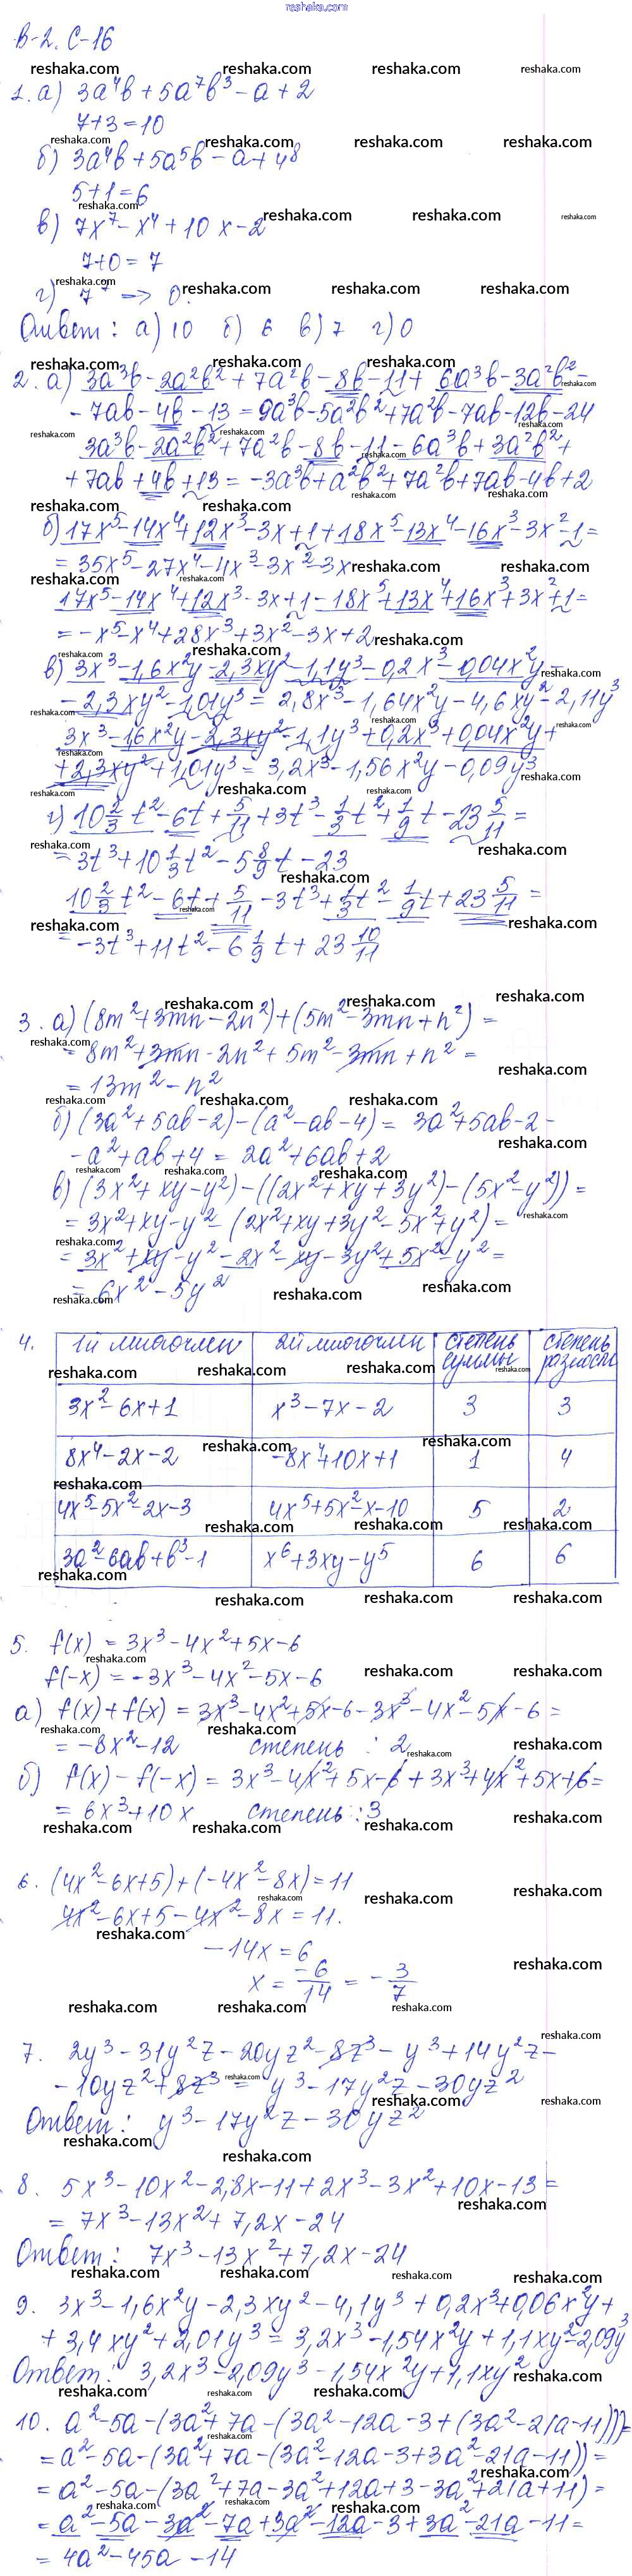 reshaka.com
В-2. С-16
1. а) 3a⁴b + 5a⁷b³ - a + 2
7+3=10
б) 3a⁴b + 5a⁵b - a + 4⁸
5+1=6
в) 7x⁷ - x⁴ + 10x - 2
7+0=7
г) 7⁷ => 0.
Ответ: а) 10 б) 6 в) 7 г) 0
2. а) 3a³b - 2a²b² + 7a²b - 8b - 11 + 6a³b - 3a²b² -
- 7ab - 4b - 13 = 9a³b - 5a²b² + 7a²b - 7ab - 12b - 24
3a³b - 2a²b² + 7a²b - 8b - 11 - 6a³b + 3a²b² +
+ 7ab + 4b + 13 = -3a³b + a²b² + 7a²b + 7ab - 4b + 2
б) 17x⁵ - 14x⁴ + 12x³ - 3x + 1 + 18x⁵ - 13x⁴ - 16x³ - 3x² - 1 =
= 35x⁵ - 27x⁴ - 4x³ - 3x² - 3x
17x⁵ - 14x⁴ + 12x³ - 3x + 1 - 18x⁵ + 13x⁴ + 16x³ + 3x² + 1 =
= -x⁵ - x⁴ + 28x³ + 3x² - 3x + 2
в) 3x³ - 1,6x²y - 2,3xy² - 1,1y³ - 0,2x³ - 0,04x²y -
- 2,3xy² - 1,01y³ = 2,8x³ - 1,64x²y - 4,6xy² - 2,11y³
3x³ - 1,6x²y - 2,3xy² - 1,1y³ + 0,2x³ + 0,04x²y +
+ 2,3xy² + 1,01y³ = 3,2x³ - 1,56x²y - 0,09y³
г) 10 2/3 t² - 6t + 5/11 + 3t³ - 1/3 t² + 1/9 t - 23 5/11 =
= 3t³ + 10 1/3 t² - 5 8/9 t - 23
10 2/3 t² - 6t + 5/11 - 3t³ + 1/3 t² - 1/9 t + 23 5/11 =
= -3t³ + 11t² - 6 1/9 t + 23 10/11
3. а) (8m² + 3mn - 2n²) + (5m² - 3mn + n²) =
= 8m² + 3mn - 2n² + 5m² - 3mn + n² =
= 13m² - n²
б) (3a² + 5ab - 2) - (a² - ab - 4) = 3a² + 5ab - 2 -
- a² + ab + 4 = 2a² + 6ab + 2
в) (3x² + xy - y²) - ((2x² + xy + 3y²) - (5x² - y²)) =
= 3x² + xy - y² - (2x² + xy + 3y² - 5x² + y²) =
= 3x² + xy - y² - 2x² - xy - 3y² + 5x² - y² =
= 6x² - 5y²
4. 1й многочлен 2й многочлен степень суммы степень разности
3x² - 6x + 1 x³ - 7x - 2 3 3
8x⁴ - 2x - 2 -8x⁴ + 10x + 1 1 4
4x⁵ - 5x² - 2x - 3 4x⁵ + 5x² - x - 10 5 2
3a² - 6ab + b³ - 1 x⁶ + 3xy - y⁵ 6 6
5. f(x) = 3x³ - 4x² + 5x - 6
f(-x) = -3x³ - 4x² - 5x - 6
а) f(x) + f(-x) = 3x³ - 4x² + 5x - 6 - 3x³ - 4x² - 5x - 6 =
= -8x² - 12 степень : 2
б) f(x) - f(-x) = 3x³ - 4x² + 5x - 6 + 3x³ + 4x² + 5x + 6 =
= 6x³ + 10x степень : 3
6. (4x² - 6x + 5) + (-4x² - 8x) = 11
4x² - 6x + 5 - 4x² - 8x = 11.
-14x = 6
x = -6/14 = -3/7
7. 2y³ - 31y²z - 20yz² - 8z³ - y³ + 14y²z -
- 10yz² + 8z³ = y³ - 17y²z - 30yz²
Ответ: y³ - 17y²z - 30yz²
8. 5x³ - 10x² - 2,8x - 11 + 2x³ - 3x² + 10x - 13 =
= 7x³ - 13x² + 7,2x - 24
Ответ: 7x³ - 13x² + 7,2x - 24
9. 3x³ - 1,6x²y - 2,3xy² - 4,1y³ + 0,2x³ + 0,06x²y +
+ 3,4xy² + 2,01y³ = 3,2x³ - 1,54x²y + 1,1xy² - 2,09y³
Ответ: 3,2x³ - 2,09y³ - 1,54x²y + 1,1xy²
10. a² - 5a - (3a² + 7a - (3a² - 12a - 3 + (3a² - 21a - 11))) =
= a² - 5a - (3a² + 7a - (3a² - 12a - 3 + 3a² - 21a - 11)) =
= a² - 5a - (3a² + 7a - 3a² + 12a + 3 - 3a² + 21a + 11) =
= a² - 5a - 3a² - 7a + 3a² - 12a - 3 + 3a² - 21a - 11 =
= 4a² - 45a - 14